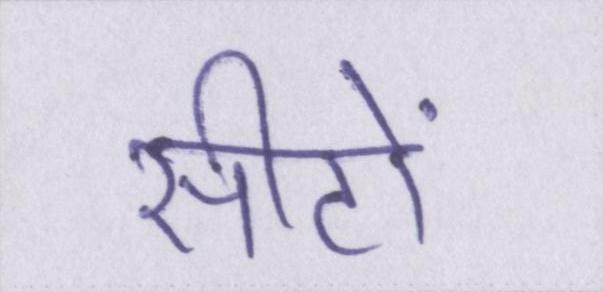 सीटों